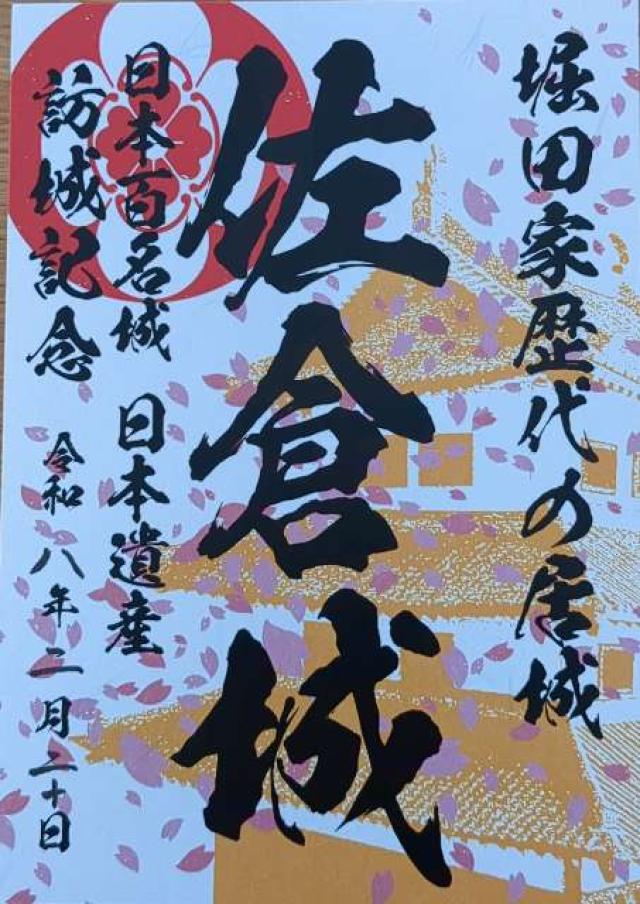 堀田家歴代の居城
佐倉城
日本百名城 日本遺産
訪城記念 令和八年二月二十日